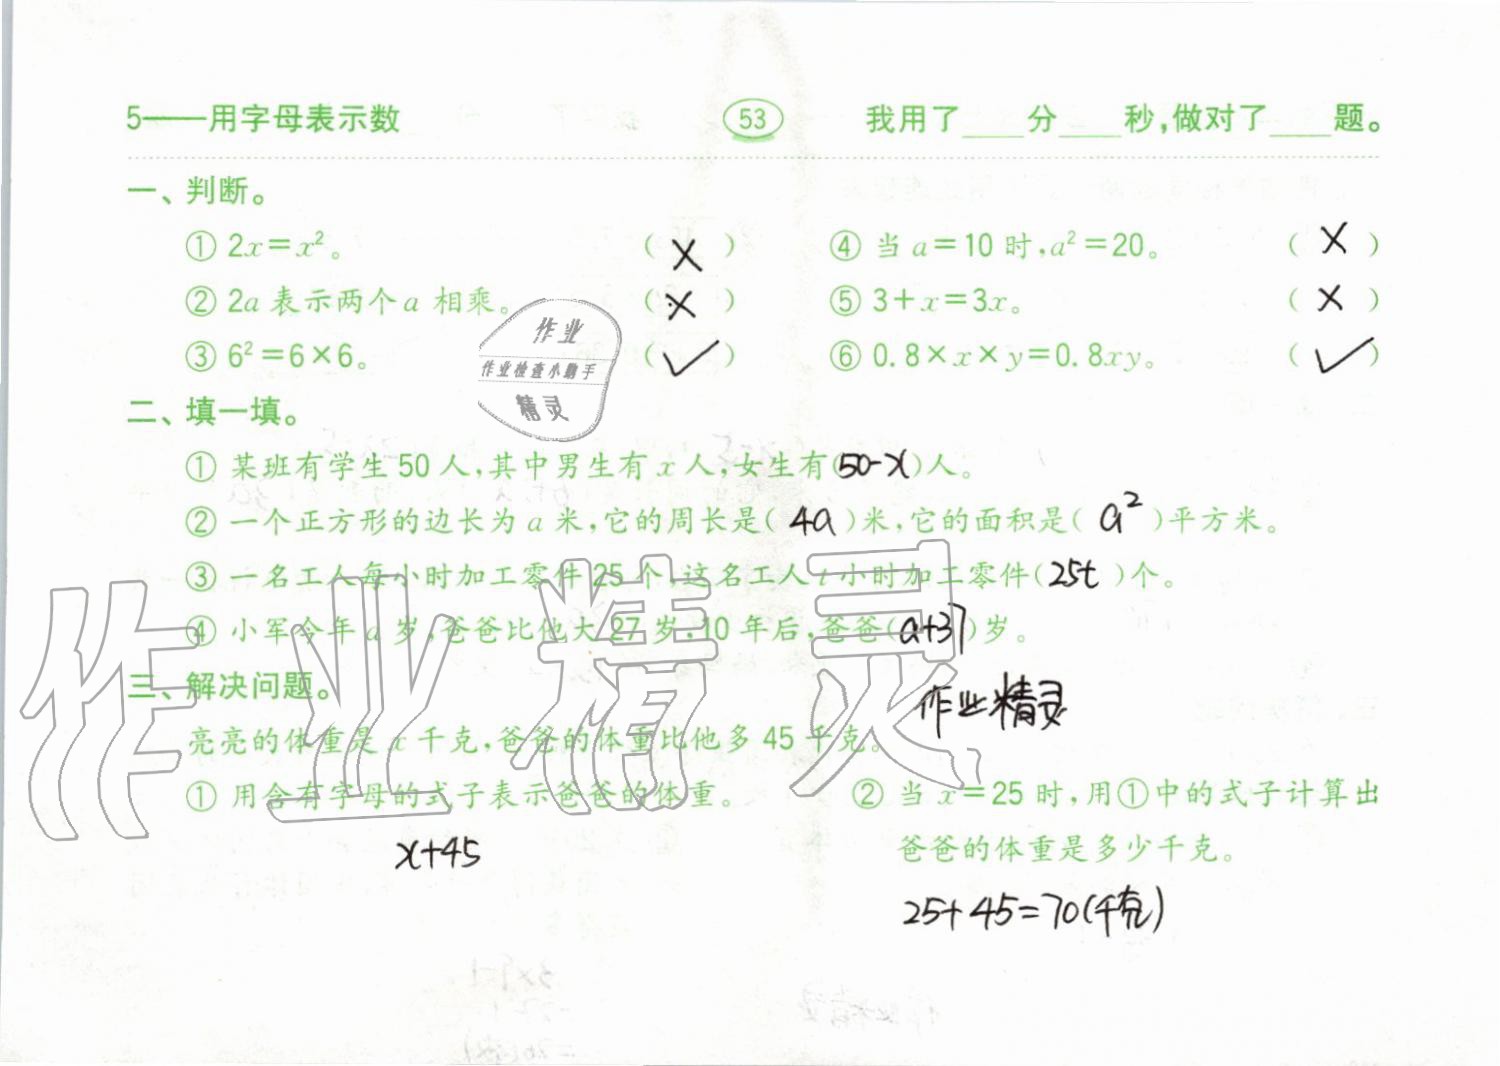 5——用字母表示数 53 我用了____分____秒,做对了____题。
一、判断。
① 2x=x²。 ( × ) ④ 当 a=10 时,a²=20。 ( × )
② 2a 表示两个 a 相乘。 ( × ) ⑤ 3+x=3x。 ( × )
③ 6²=6×6。 ( ✓ ) ⑥ 0.8×x×y=0.8xy。 ( ✓ )
作业
作业检查小助手
精灵
二、填一填。
① 某班有学生 50 人,其中男生有 x 人,女生有(50-x)人。
② 一个正方形的边长为 a 米,它的周长是( 4a )米,它的面积是( a² )平方米。
③ 一名工人每小时加工零件 25 个,这名工人 t 小时加工零件( 25t )个。
④ 小军今年 a 岁,爸爸比他大 27 岁,10 年后,爸爸(a+37)岁。
作业精灵
三、解决问题。
作业精灵
亮亮的体重是 x 千克,爸爸的体重比他多 45 千克。
① 用含有字母的式子表示爸爸的体重。
x+45
② 当 x=25 时,用①中的式子计算出
爸爸的体重是多少千克。
25+45=70(千克)